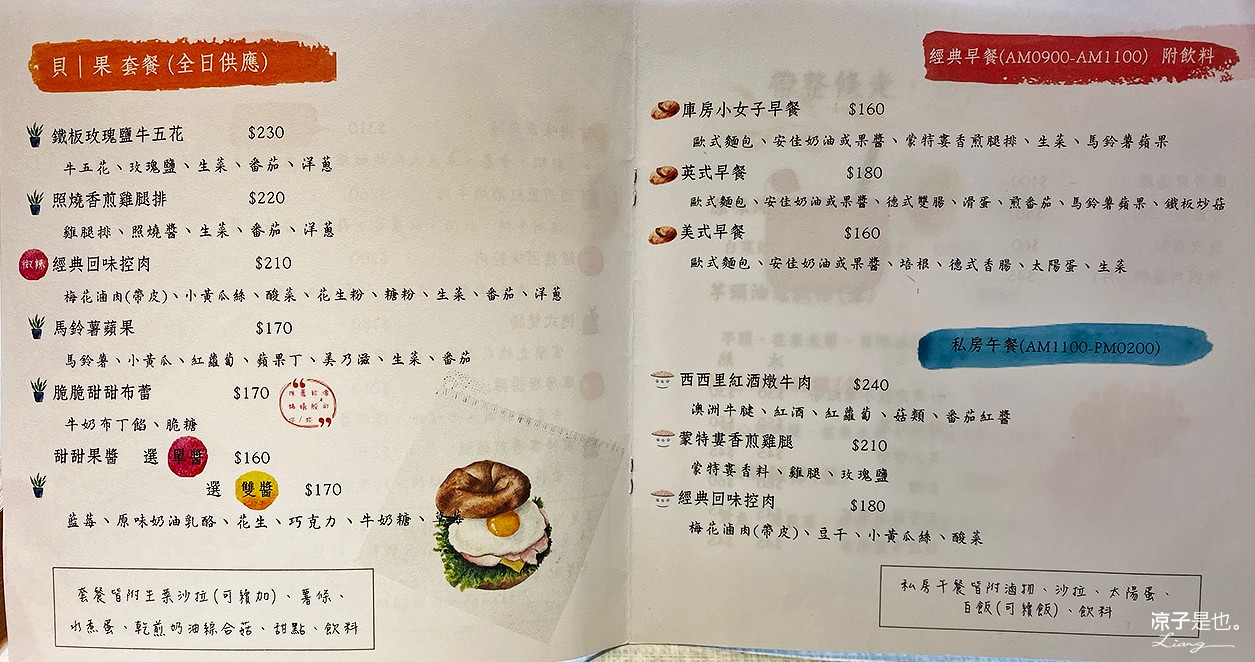 貝|果 套餐 (全日供應)
鐵板玫瑰鹽牛五花 $230
牛五花、玫瑰鹽、生菜、番茄、洋蔥
照燒香煎雞腿排 $220
雞腿排、照燒醬、生菜、番茄、洋蔥
微辣 經典回味控肉 $210
梅花滷肉(帶皮)、小黃瓜絲、酸菜、花生粉、糖粉、生菜、番茄、洋蔥
馬鈴薯蘋果 $170
馬鈴薯、小黃瓜、紅蘿蔔、蘋果丁、美乃滋、生菜、番茄
脆脆甜甜布蕾 $170
牛奶布丁餡、脆糖
甜甜果醬 選 單醬 $160
選 雙醬 $170
藍莓、原味奶油乳酪、花生、巧克力、牛奶糖、
套餐皆附生菜沙拉(可續加)、薯條、
水煮蛋、乾煎奶油綜合菇、甜點、飲料
經典早餐(AM0900-AM1100) 附飲料
庫房小女子早餐 $160
歐式麵包、安佳奶油或果醬、蒙特婁香煎腿排、生菜、馬鈴薯蘋果
英式早餐 $180
歐式麵包、安佳奶油或果醬、德式雙腸、滑蛋、煎番茄、馬鈴薯蘋果、鐵板炒菇
美式早餐 $160
歐式麵包、安佳奶油或果醬、培根、德式香腸、太陽蛋、生菜
私房午餐(AM1100-PM0200)
西西里紅酒燉牛肉 $240
澳洲牛腱、紅酒、紅蘿蔔、菇類、番茄紅醬
蒙特婁香煎雞腿 $210
蒙特婁香料、雞腿、玫瑰鹽
經典回味控肉 $180
梅花滷肉(帶皮)、豆干、小黃瓜絲、酸菜
私房午餐皆附滷物、沙拉、太陽蛋、
白飯(可續飯)、飲料
凉子是也。
Liang